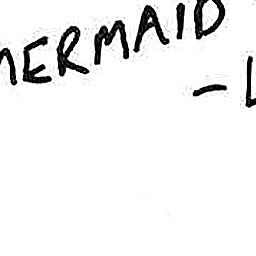 MERMAID
- L